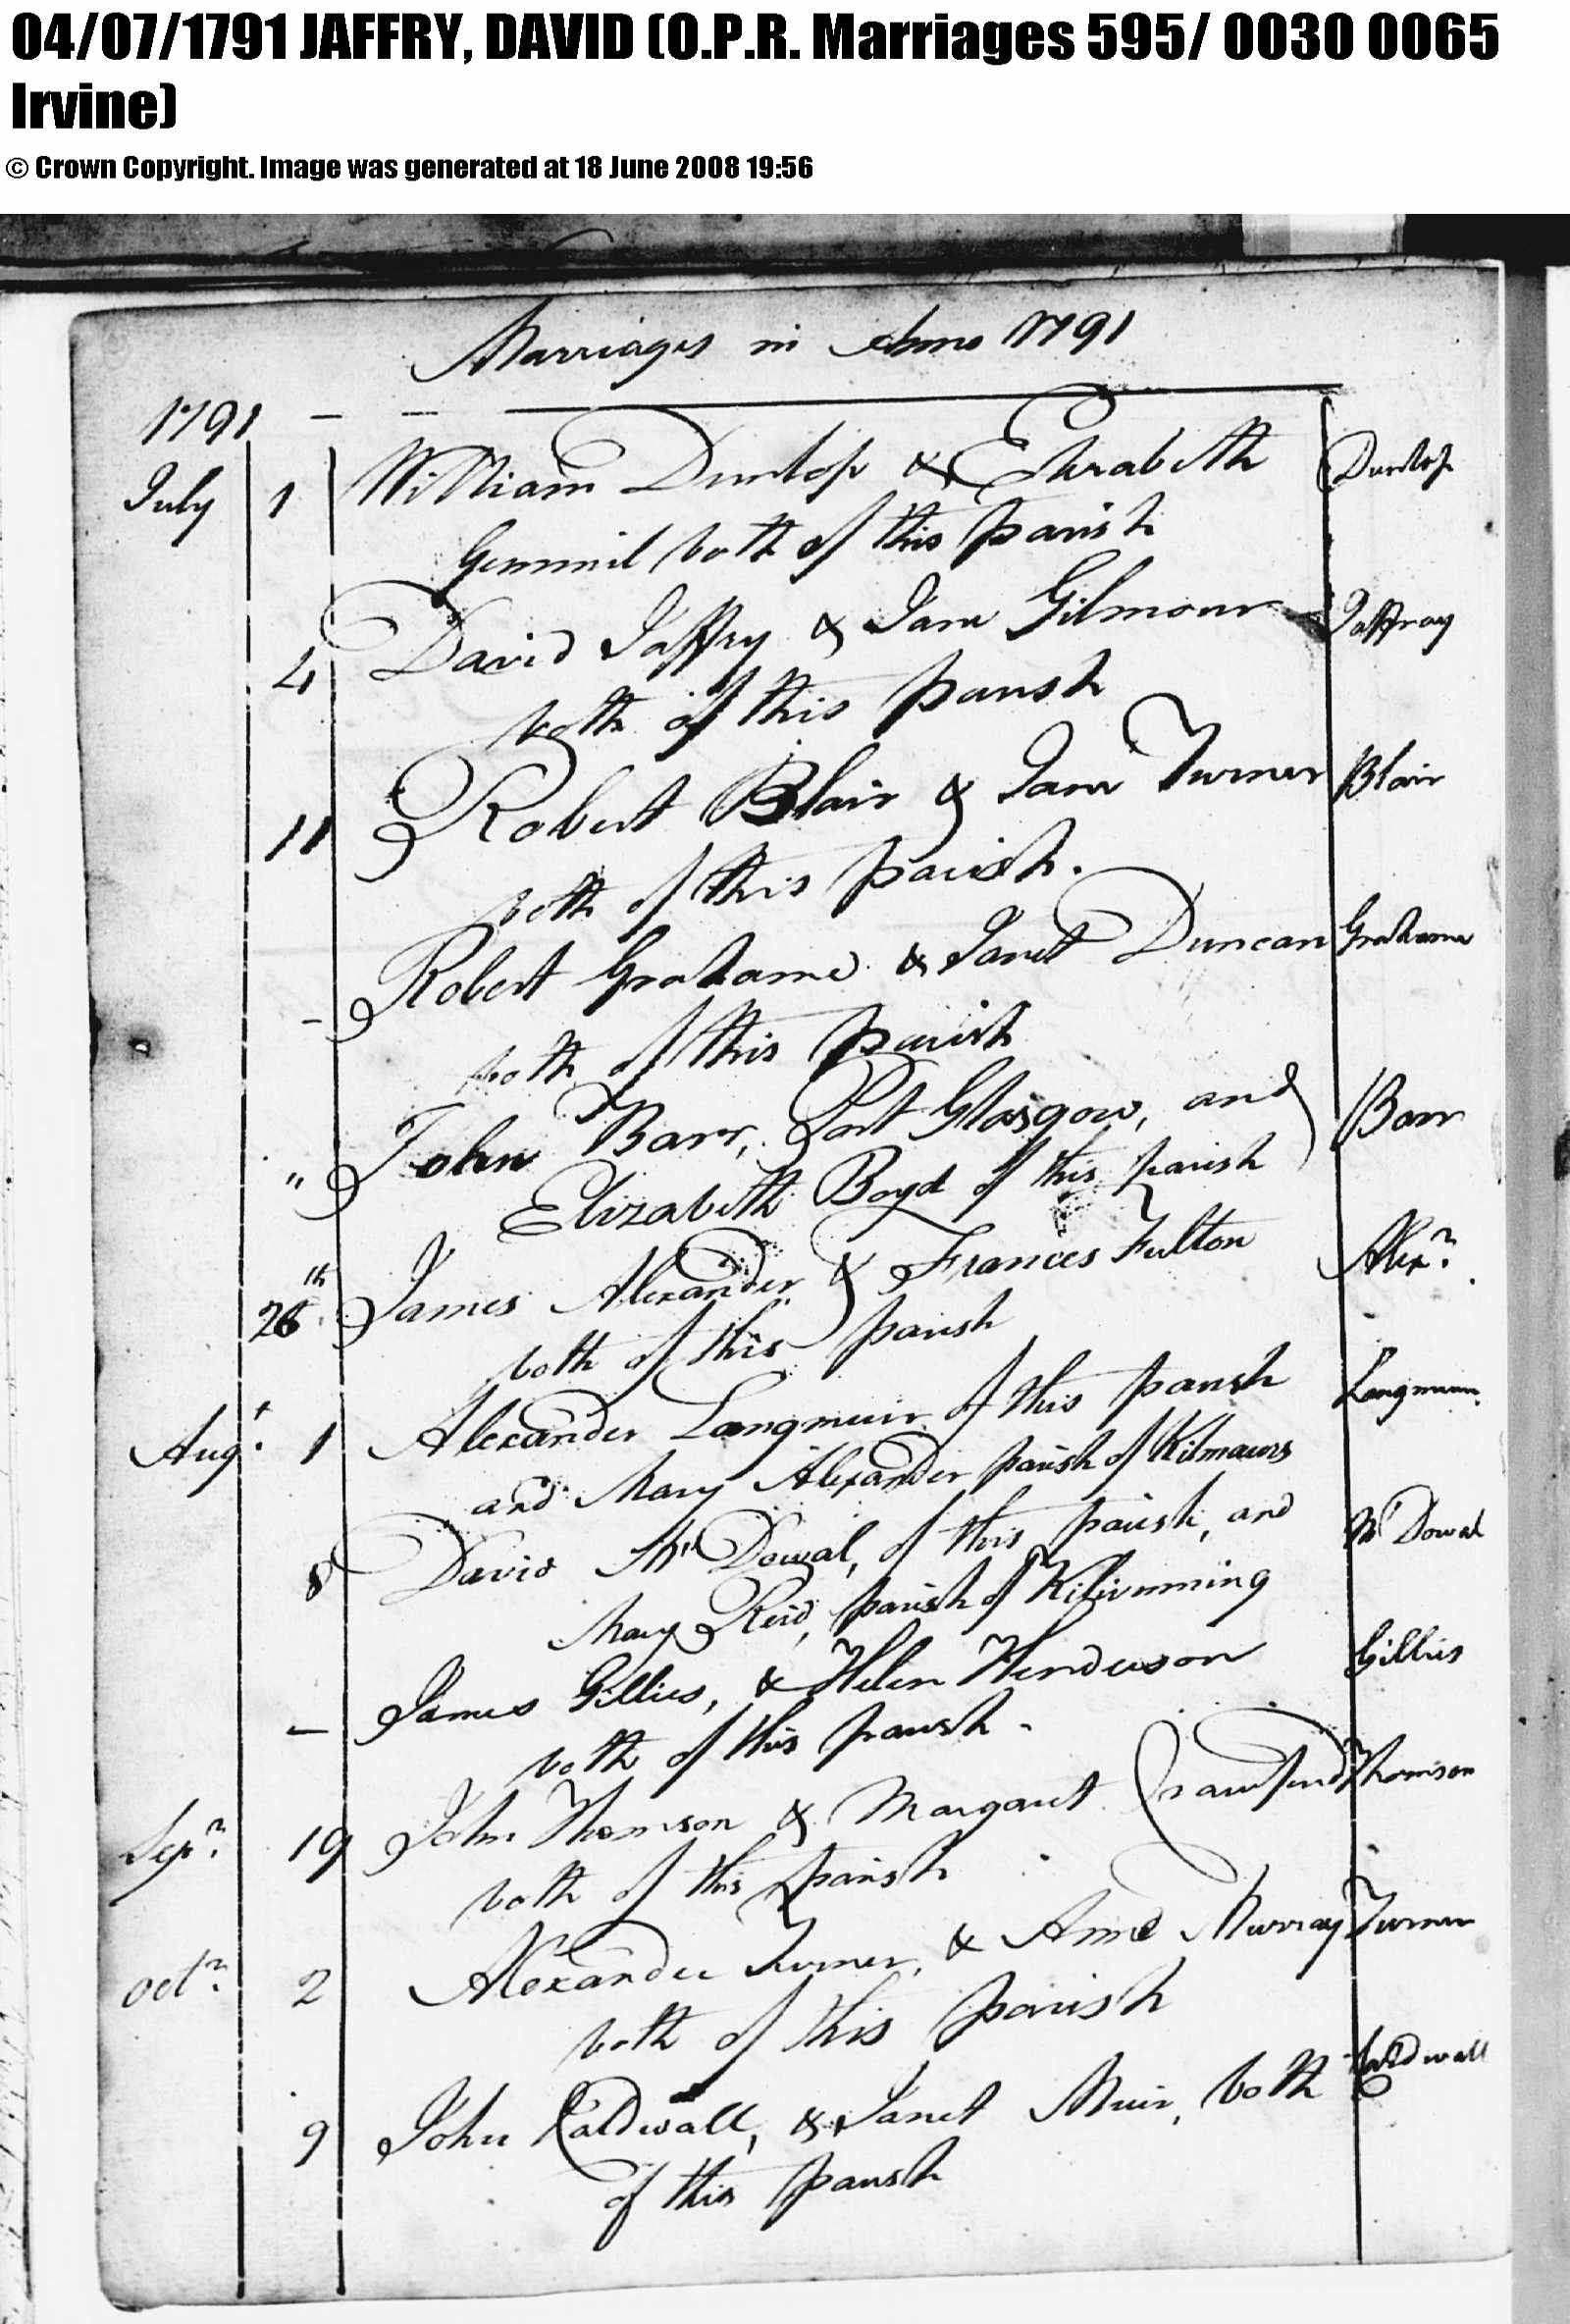 04/07/1791 JAFFRY, DAVID (O.P.R. Marriages 595/ 0030 0065
Irvine)
© Crown Copyright. Image was generated at 18 June 2008 19:56
Marriages in Anno 1791
1791
July 1 William Dunlop & Elizabeth Dunlop
Gemmil both of this parish
4 David Jaffry & Jane Gilmour Jaffray
both of this parish
11 Robert Blair & Jane Turner Blair
both of this parish.
- Robert Grahame & Janet Duncan Grahame
both of this parish
" John Barr, Port Glasgow, and Barr
Elizabeth Boyd of this parish
26th James Alexander & Frances Fulton Alexr
both of this parish
Augt. 1 Alexander Langmuir of this parish Langmuir
and Mary Alexander parish of Kilmaurs
8 David McDowal, of this parish, and McDowal
Mary Reid, parish of Kilwinning
- James Gillies, & Helen Henderson Gillies
both of this parish.
Sepr. 19 John Thomson & Margaret Crawfurd Thomson
both of this parish
Octr. 2 Alexander Turner, & Anne Murray Turner
both of this parish
9 John Caldwall, & Janet Muir, both Caldwall
of this parish